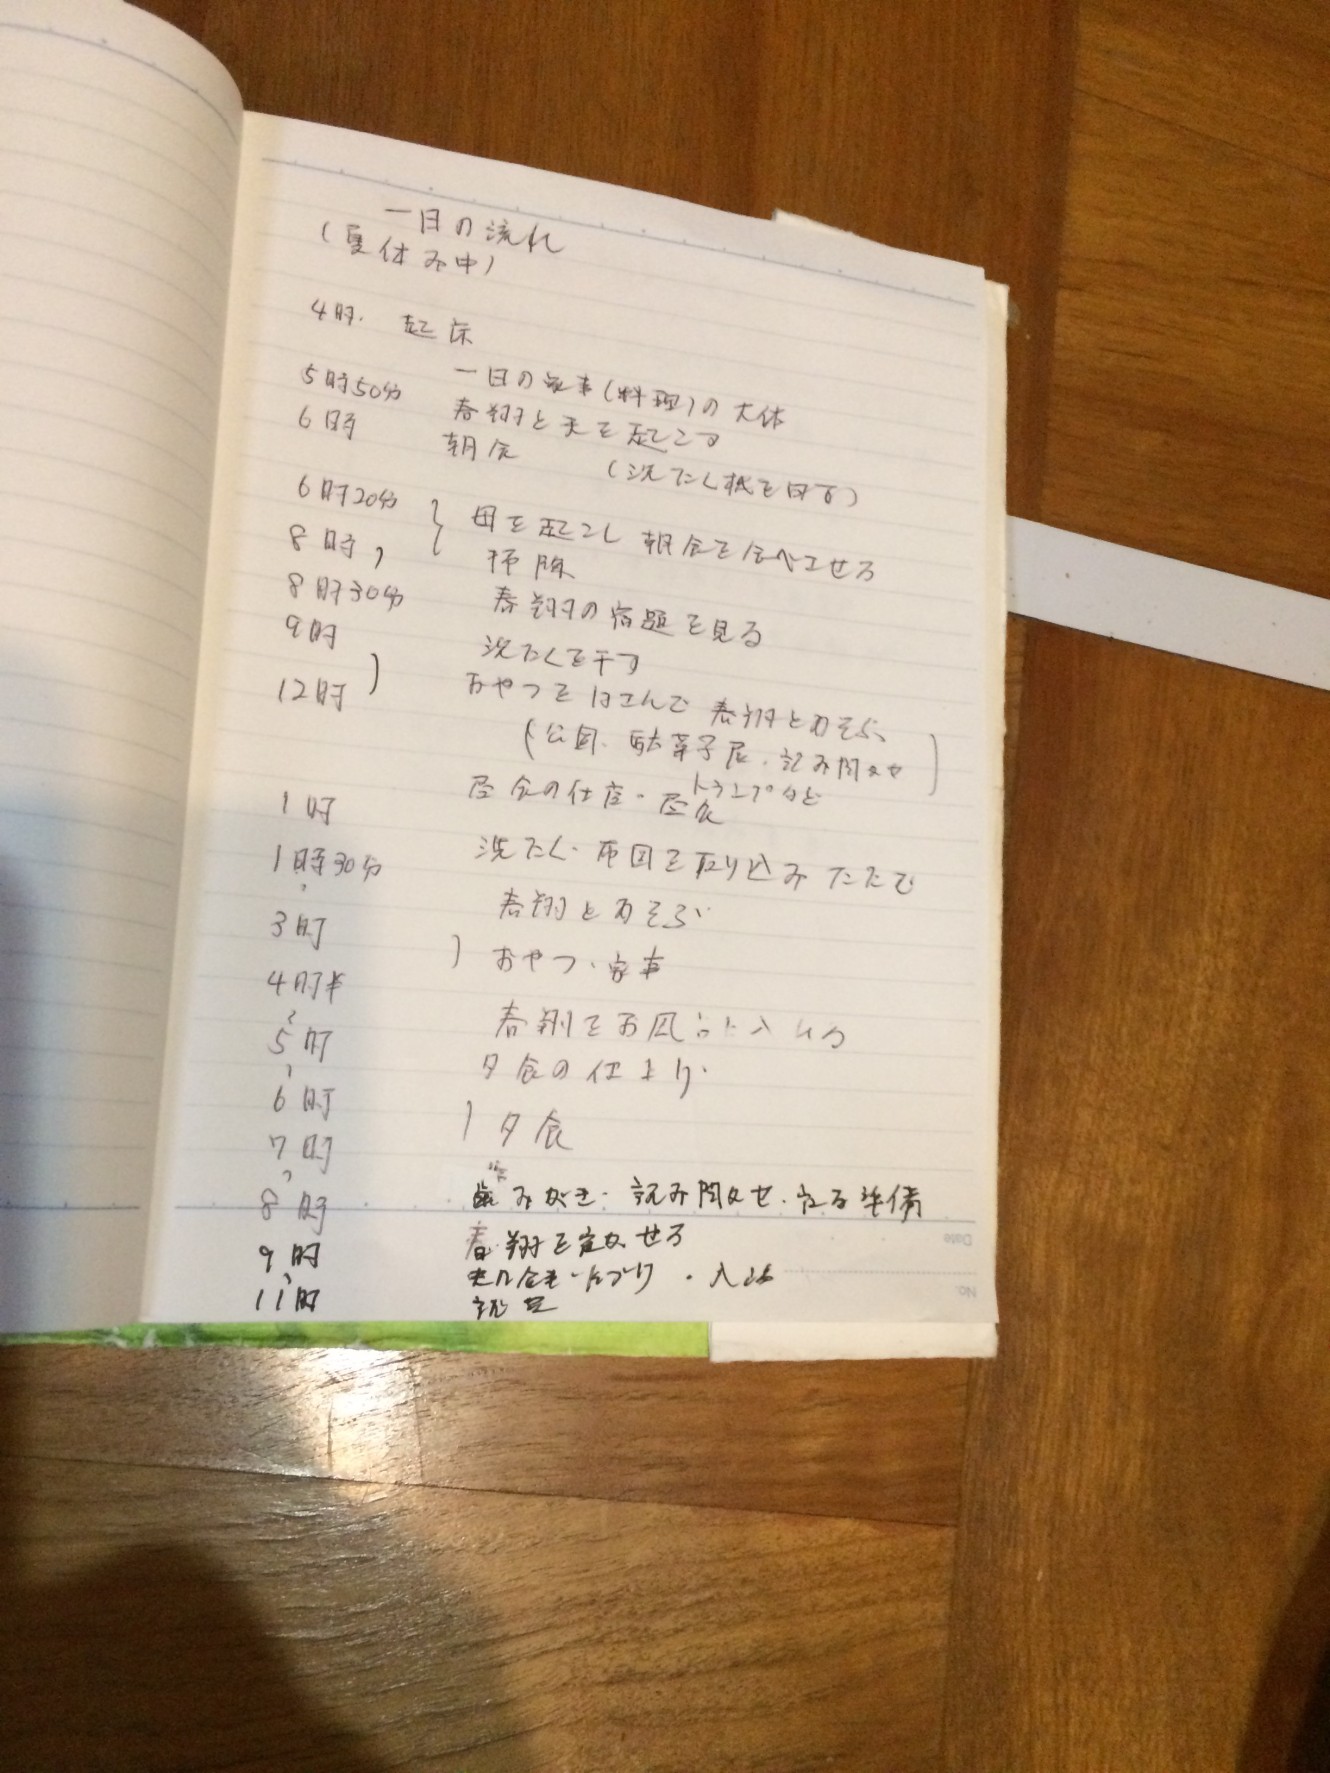 一日の流れ
(夏休み中)
4時. 起床
一日の家事(料理)の大体
5時50分 春翔と夫を起こす
6時 朝食 (洗たく機を回す)
6時20分 母を起こし朝食を食べさせる
8時 掃除
8時30分 春翔の宿題を見る
9時 洗たくを干す
12時 おやつをはさんで春翔とあそぶ
(公園、駄菓子屋、読み聞かせ
トランプなど)
1時 昼食の仕度・昼食
1時30分 洗たく・布団を取り込みたたむ
3時 春翔とあそぶ
4時半 おやつ・家事
5時 春翔をお風呂に入れる
6時 夕食の仕上げ
7時 夕食
8時 歯みがき・読み聞かせ・寝る準備
9時 春翔を寝かせる
11時
Date
No.